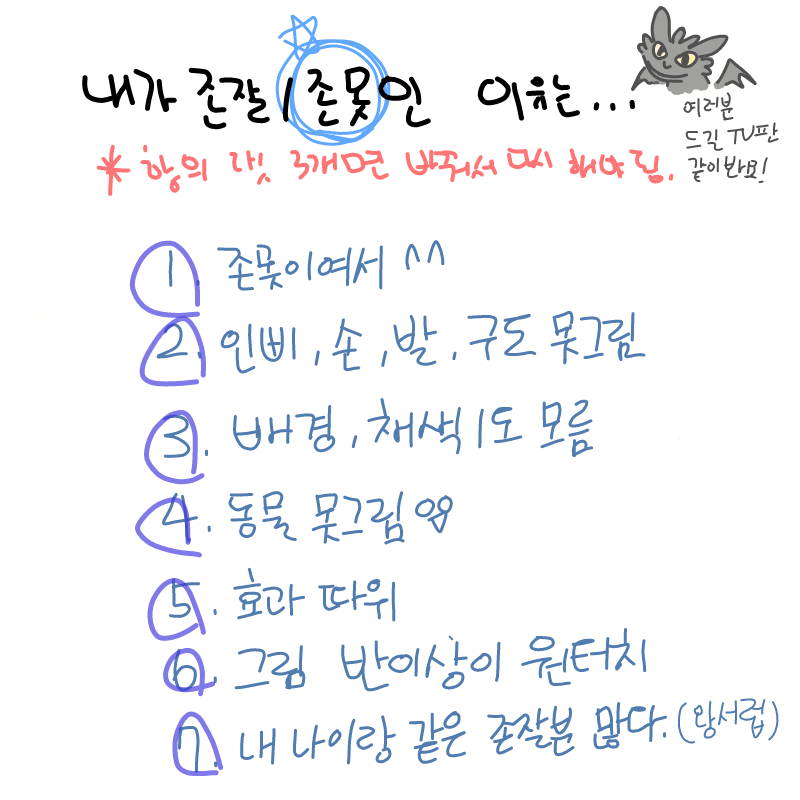 내가 존잘/존못인 이유는...
여러분
드길 TV판
같이봐요!
* 항의 댓 3개면 바꿔서 다시 해야 됨.
1. 존못이여서 ^^
2. 인삐, 손, 발, 구도 못그림
3. 배경, 채색 1도 모름
4. 동물 못그림
5. 효과 따위
6. 그림 반이상이 원터치
7. 내 나이랑 같은 존잘분 많다. (왕서럽)